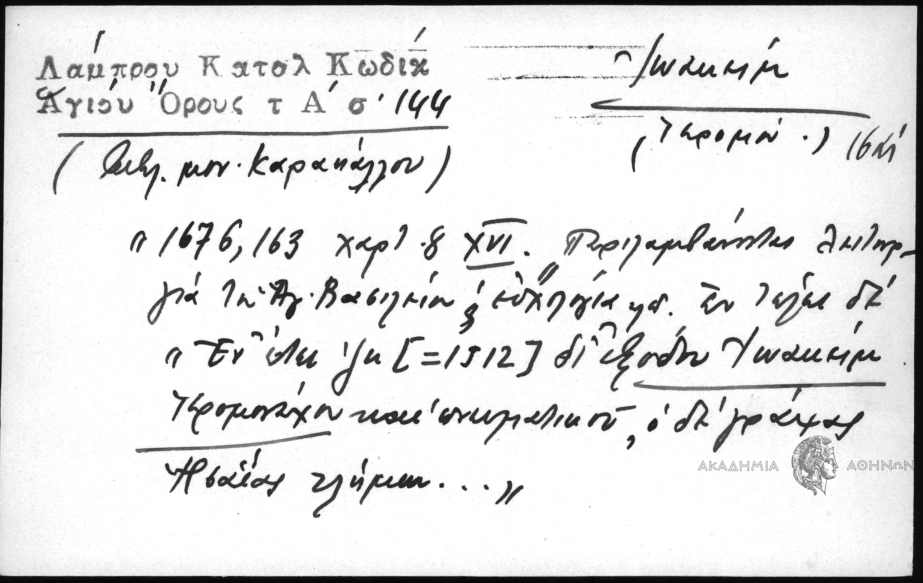 Λάμπρου Κατολ Κωδίκ
Ἁγίου Ὄρους τ Α' σ. 144
Ἰωακείμ
(Ἱερομόν.) 16 αἰ
( μον. Καρακάλλου)
" 1676, 163 χαρτ. 8 XVI. Περιλαμβάνονται λειτουρ-
γία τοῦ Ἁγ. Βασιλείου εὐχολόγια κλ. Ἐν τέλει δέ
" Ἐν ἔτει ͵ζκ [=1512] δι' ἐξόδου Ἰωακείμ
Ἱερομονάχου καί πνευματικοῦ, ὁ δέ γράψας
Ἡσαΐας τλήμων...."
ΑΚΑΔΗΜΙΑ ΑΘΗΝΩΝ